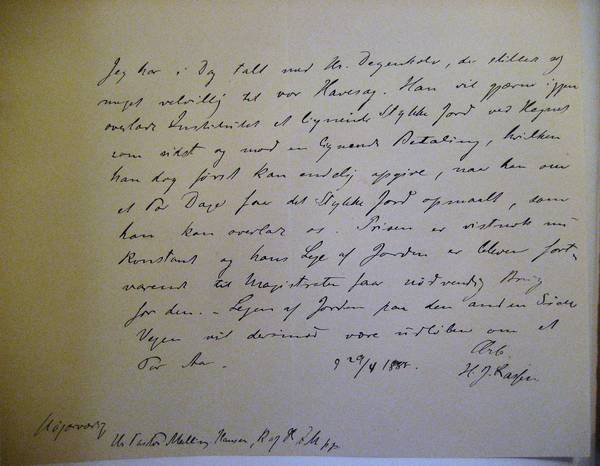 Jeg har i Dag talt med Hr. Degenkolv, der stiller sig
meget velvillig til vor Havesag. Han vil gjærne igjen
overlade Institutet et lignende Stykke Jord ved Hegnet
som sidst og mod en lignende Betaling, hvilken
han dog først kan endelig opgive, naar han om
et Par Dage faar det Stykke Jord opmaalt, som
han kan overlade os. Prisen er vistnok
Konstant og hans Leje af Jorden er bleven fort-
varende til Magistraten faar nødvendig Brug
for den. - Lejen af Jorden paa den anden Side
Vejen vil derimod være udløben om et
Par Aar. 29/4 1885
Ærb.
H. J. Larsen
Højærværdig
Hr Pastor Malling Hansen, R af D